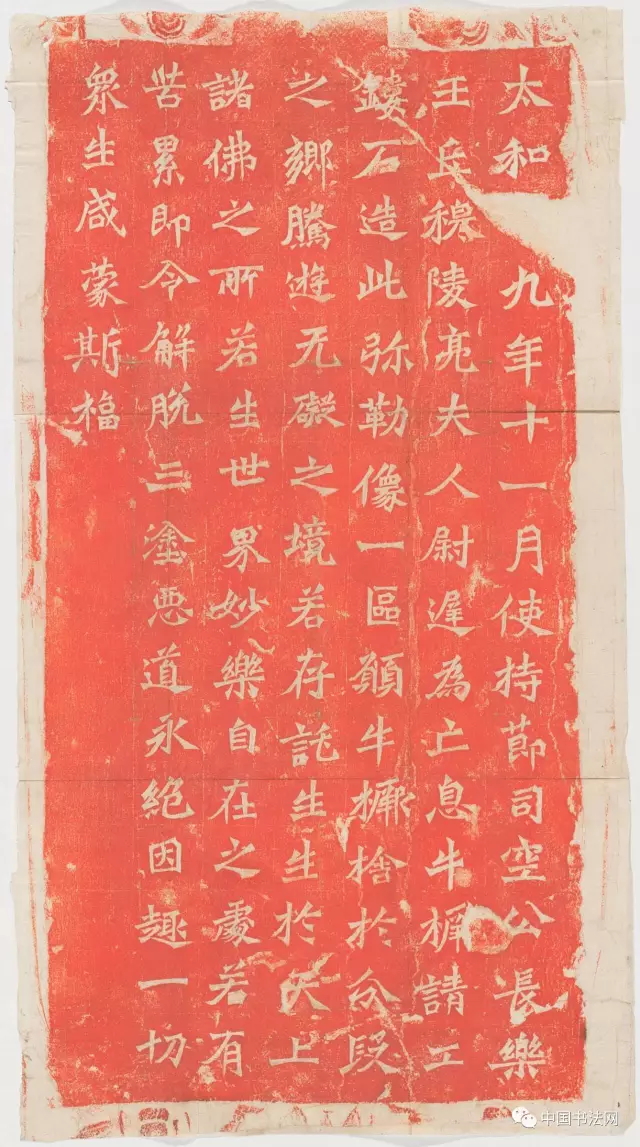 太和九年十一月使持節司空公長樂
王丘穆陵亮夫人尉遲為亡息牛橛請工
鏤石造此弥勒像一區願牛橛捨於分段
之鄉騰遊无礙之境若存託生生於天上
諸佛之所若生世界妙樂自在之處若有
苦累即令解脱三塗惡道永絶因趣一切
衆生咸蒙斯福
中国书法网